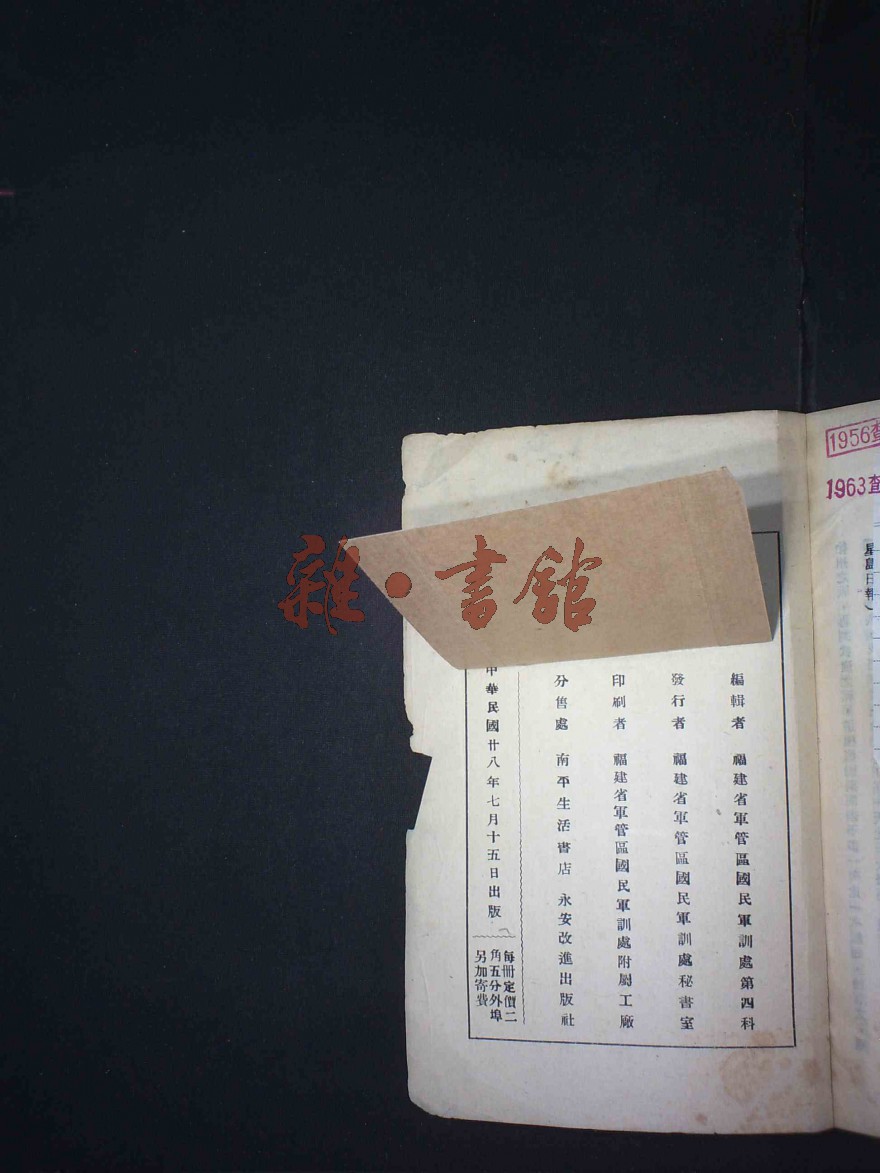 1956查
1963查
星島日報）
編輯者 福建省軍管區國民軍訓處第四科
發行者 福建省軍管區國民軍訓處秘書室
印刷者 福建省軍管區國民軍訓處附屬工廠
分售處 南平生活書店 永安改進出版社
中華民國廿八年七月十五日出版
每冊定價二
角五分外埠
另加寄費
雜·書館